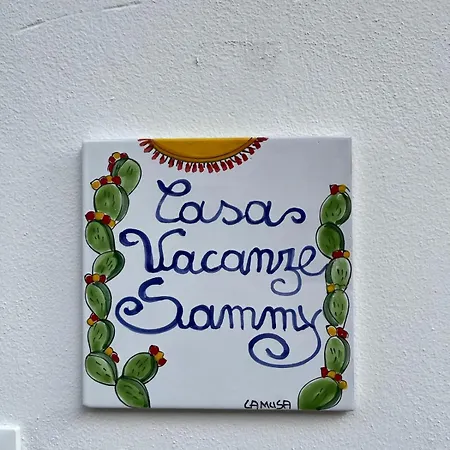 Casa
Vacanze
Sammy
LAMUSA